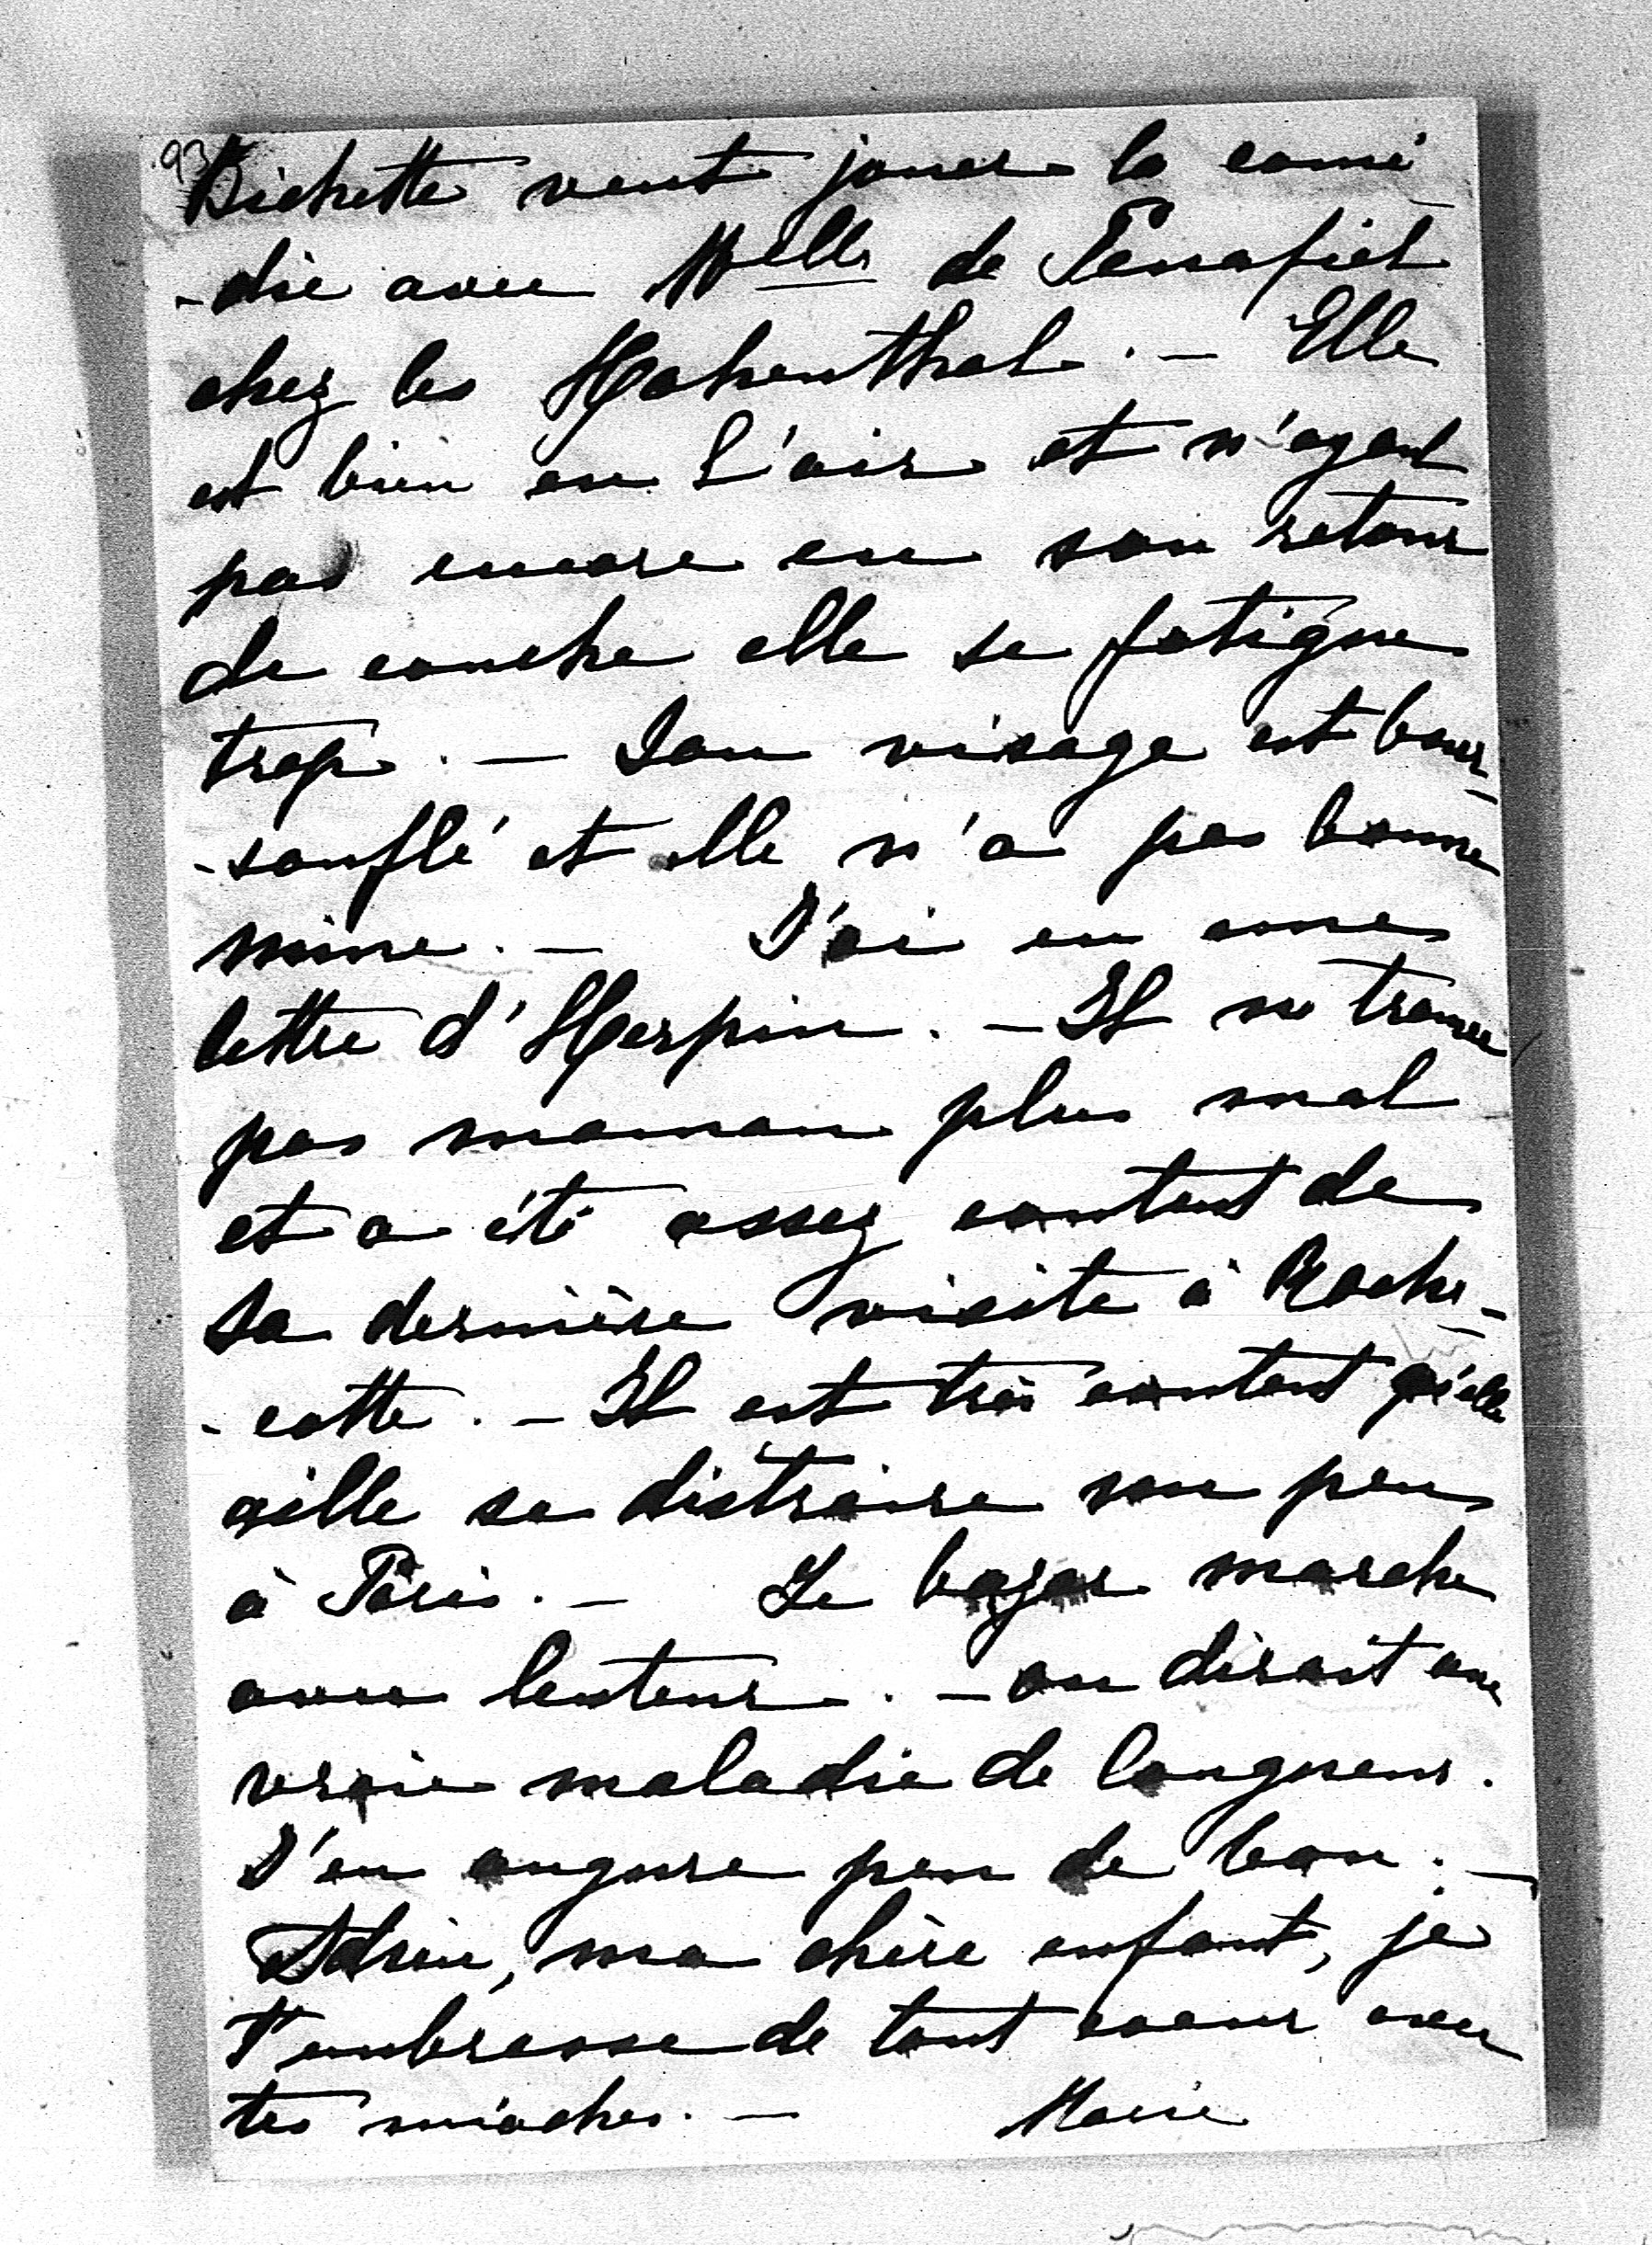 93
Bichette veut jouer la comé
-die avec Melle de Penafiel
chez les Hohenthal. — Elle
est bien en l'air et n'ayant
pas encore eu son retour
de couche elle se fatigue
trop. — Son visage est bour-
-souflé et elle n'a pas bonne
mine. — J'ai eu une
lettre d'Herpin. — Il ne trouve
pas maman plus mal
et a été assez content de
sa dernière visite à Roche-
-cotte. — Il est très content qu'elle
aille se distraire un peu
à Paris. — Le bazar marche
avec lenteur. — on dirait une
vraie maladie de langueur.
J'en augure peu de bon. —
Adieu, ma chère enfant, je
t'embrasse de tout coeur avec
tes mioches. — Marie